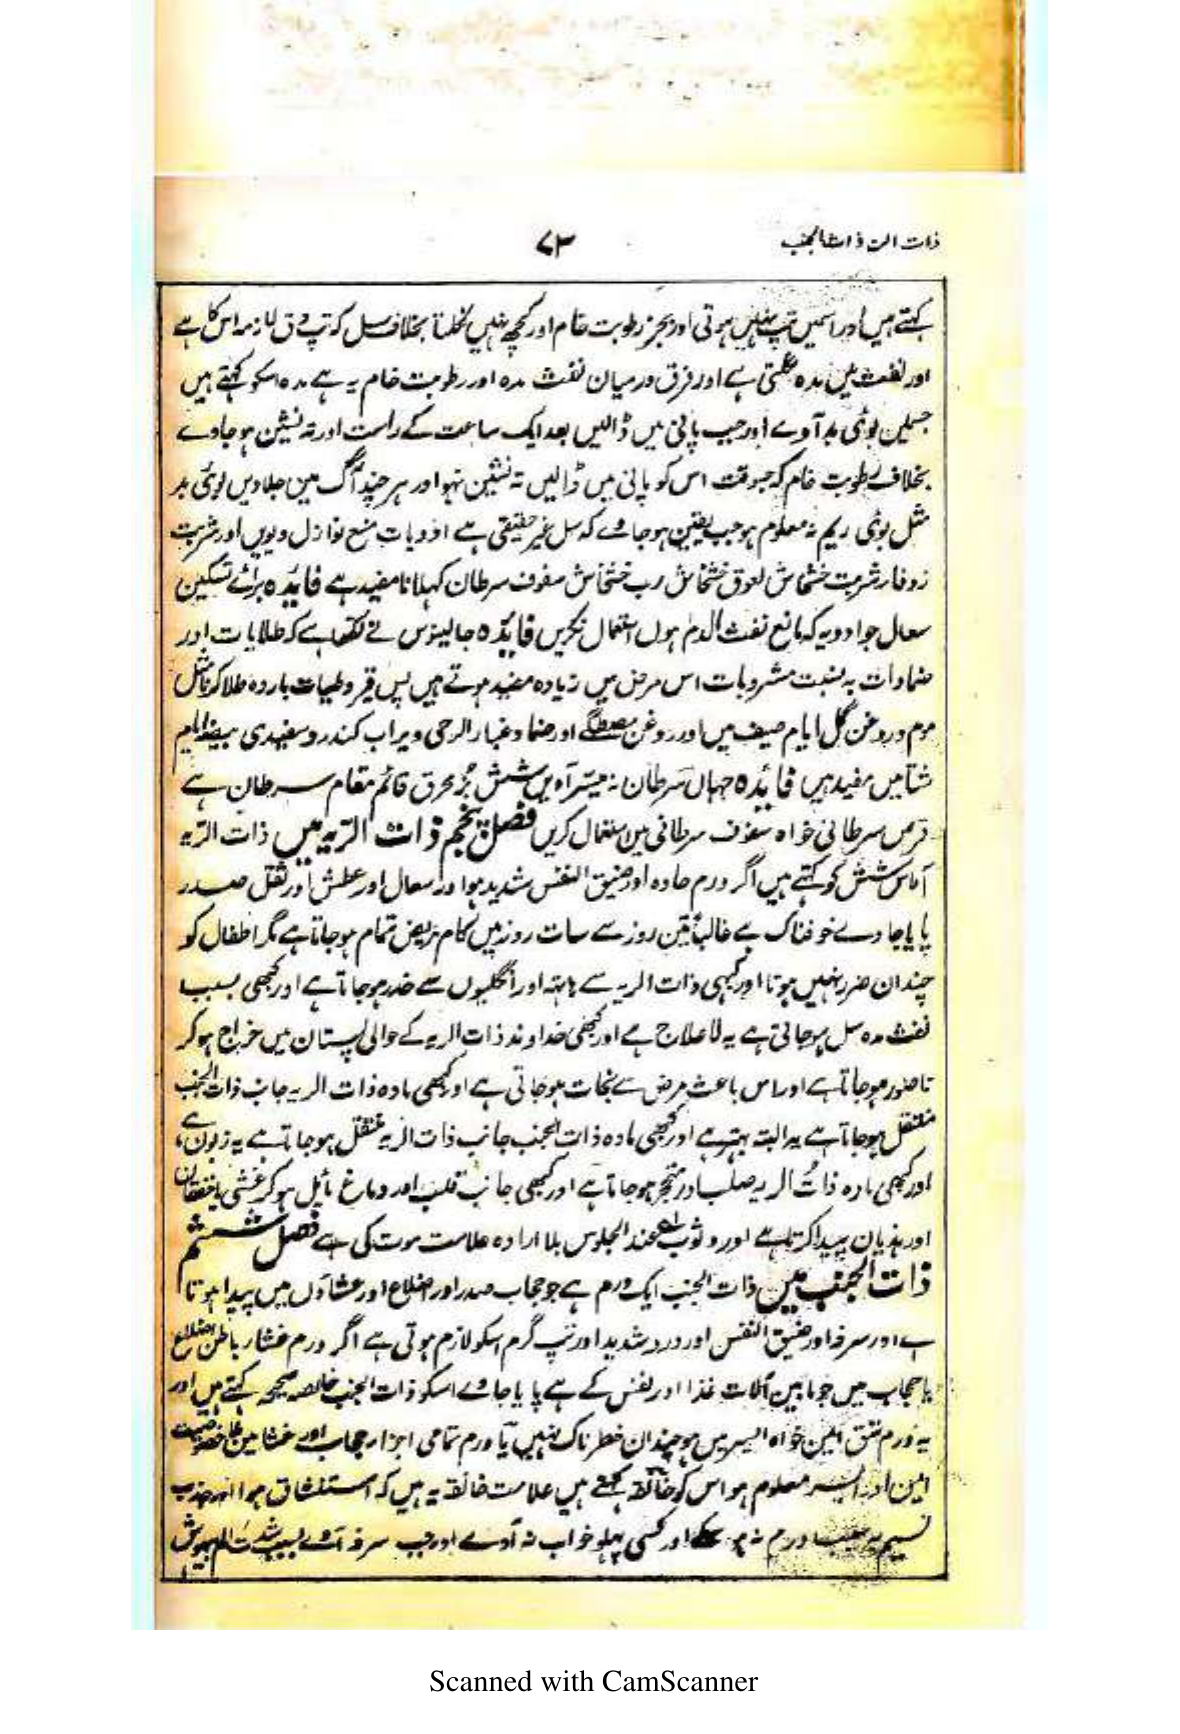 ذات الریہ ذات الجنب
۷۳
کہتے ہیں اور اسمیں تپ نہیں ہوتی اور بجز رطوبت خام اور کچھ نہیں نکلتا بخلاف سل کہ تپ دق لازمہ اس کا ہے
اور نفث میں مدہ نکلتی ہے اور فرق درمیان نفث مدہ اور رطوبت خام یہ ہے مدہ اسکو کہتے ہیں
جسمین بوئی بد آوے اور جب پانی میں ڈالیں بعد ایک ساعت کے راست اور تہ نشین ہو جاوے
بخلاف رطوبت خام کہ جسوقت اس کو پانی میں ڈالیں تہ نشین نہو اور ہر چند آگ مین جلاویں بوئی بد
مثل بوئی ریم نہ معلوم ہو جب یقین ہو جاوے کہ سل غیر حقیقی ہے ادویات منع نوازل دیویں اور شربت
زوفا شربت خشخاش لعوق خشخاش رب خشخاش سفوف سرطان کہلانا مفید ہے فائدہ برائے تسکین
سعال جو ادویہ کہ مانع نفث الدم ہوں استعمال نکریں فائدہ جالینوس نے لکھا ہے کہ طلایات اور
ضمادات بہ نسبت مشروبات اس مرض میں زیادہ مفید ہوتے ہیں پس قیروطیات باردہ طلا کرنا مثل
موم و روغن گل ایام صیف میں اور روغن مصطگے اور ضماد غبار الرحی و براب کندر و سفیدی بیضہ ایام
شتا میں مفید ہیں فائدہ جہاں سرطان نہ میسر آویں شش بز محرق قائم مقام سرطان ہے
قرص سرطانی خواہ سفوف سرطانی مین استعمال کریں فصل پنجم ذات الریہ میں ذات الریہ
آماس شش کو کہتے ہیں اگر ورم حادہ اور ضیق النفس شدید ہو اور سعال اور عطش اور ثقل صدر
پایا جاوے خوفناک ہے غالباً تین روز سے سات روز میں کام مریض تمام ہو جاتا ہے مگر اطفال کو
چندان ضرر نہیں ہوتا اور کبہی ذات الریہ سے ہاتہ اور انگلیوں سے خدر ہو جاتا ہے اور کبھی بسبب
نفث مدہ سل ہو جاتی ہے یہ لا علاج ہے اور کبھی خداوند ذات الریہ کے حوالی پستان میں خراج ہو کر
ناصور ہو جاتا ہے اور اس باعث مرض سے نجات ہو جاتی ہے اور کبھی مادہ ذات الریہ جانب ذات الجنب
منتقل ہو جاتا ہے یہ البتہ بہتر ہے اور کبھی مادہ ذات الجنب جانب ذات الریہ منتقل ہو جاتا ہے یہ زبون ہے
اور کبھی مادہ ذات الریہ صلب اور متحجر ہو جاتا ہے اور کبھی جانب قلب اور دماغ مائل ہو کر غشی یا خفقان
اور ہذیان پیدا کرتا ہے اور وثوب عند الجلوس بلا ارادہ علامت موت کی ہے فصل ششم
ذات الجنب میں ذات الجنب ایک ورم ہے جو حجاب صدر اور اضلاع اور عشاؤں میں پیدا ہوتا
ہے اور سرفہ اور ضیق النفس اور درد شدید اور تپ گرم اسکو لازم ہوتی ہے اگر ورم غشار باطن اضلاع
یا حجاب میں جو مابین آلات غذا اور نفس کے ہے پایا جاوے اسکو ذات الجنب خالصہ صحیحہ کہتے ہیں اور
یہ ورم شق ایمن خواہ ایسر میں ہو چندان خطرناک نہیں یا ورم تمامی اجزار حجاب اور غشا مین
ایمن اور ایسر معلوم ہو اس کو خانقہ کہتے ہیں علامت خانقہ یہ ہیں کہ استنشاق ہوا اور جذب
نسیم بسبب ورم نہ ہو سکے اور کسی پہلو خواب نہ آوے اور جب سرفہ آوے بسبب شدت الم بیہوش
Scanned with CamScanner